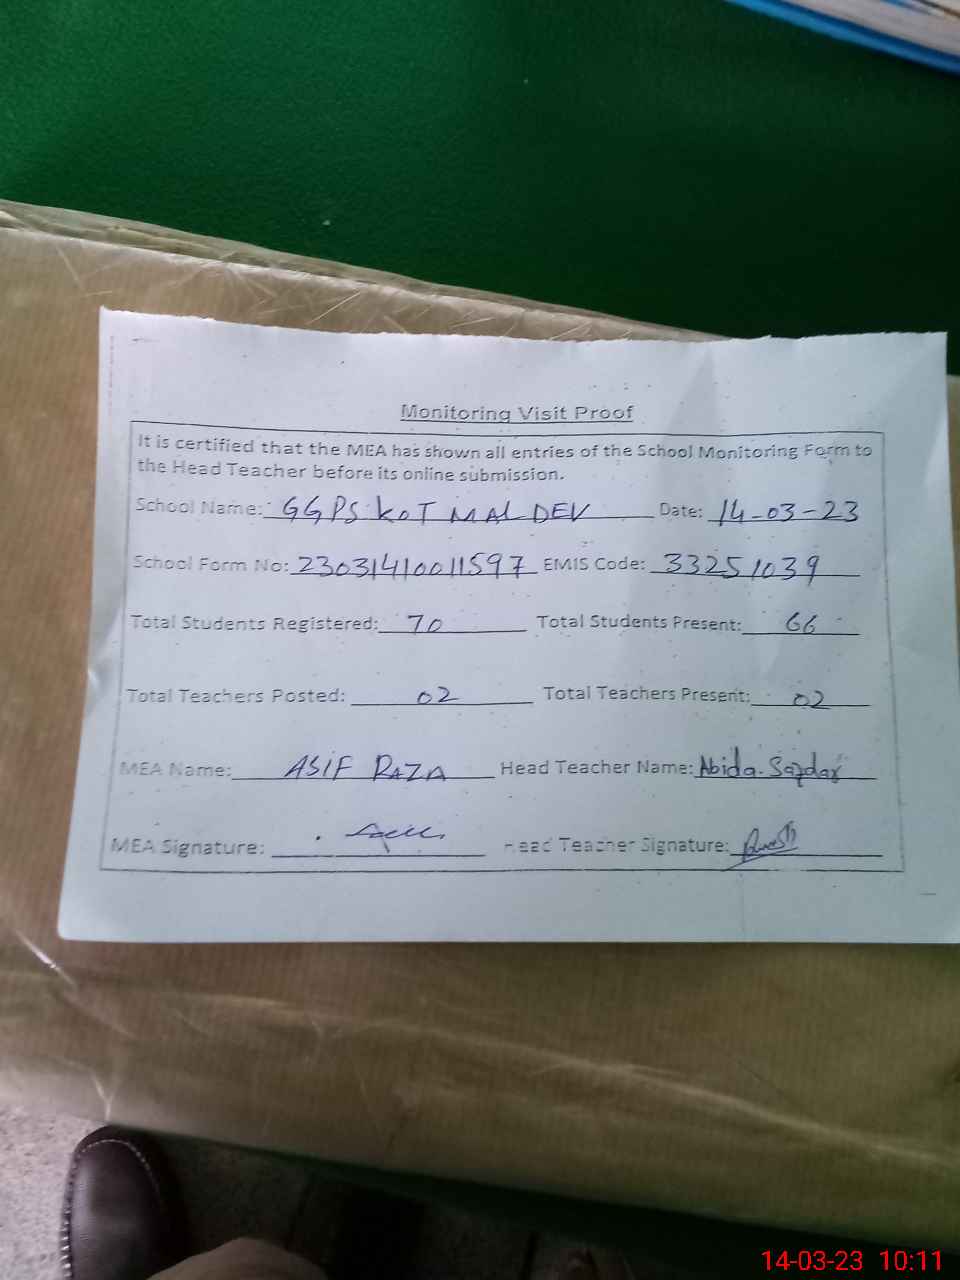 Monitoring Visit Proof
It is certified that the MEA has shown all entries of the School Monitoring Form to
the Head Teacher before its online submission.
School Name: GGPS KOT MAL DEV Date: 14-03-23
School Form No: 23031410011597 EMIS Code: 33251039
Total Students Registered: 70 Total Students Present: 66
Total Teachers Posted: 02 Total Teachers Present: 02
MEA Name: ASIF RAZA Head Teacher Name: Abida
MEA Signature: Head Teacher Signature:
14-03-23 10:11